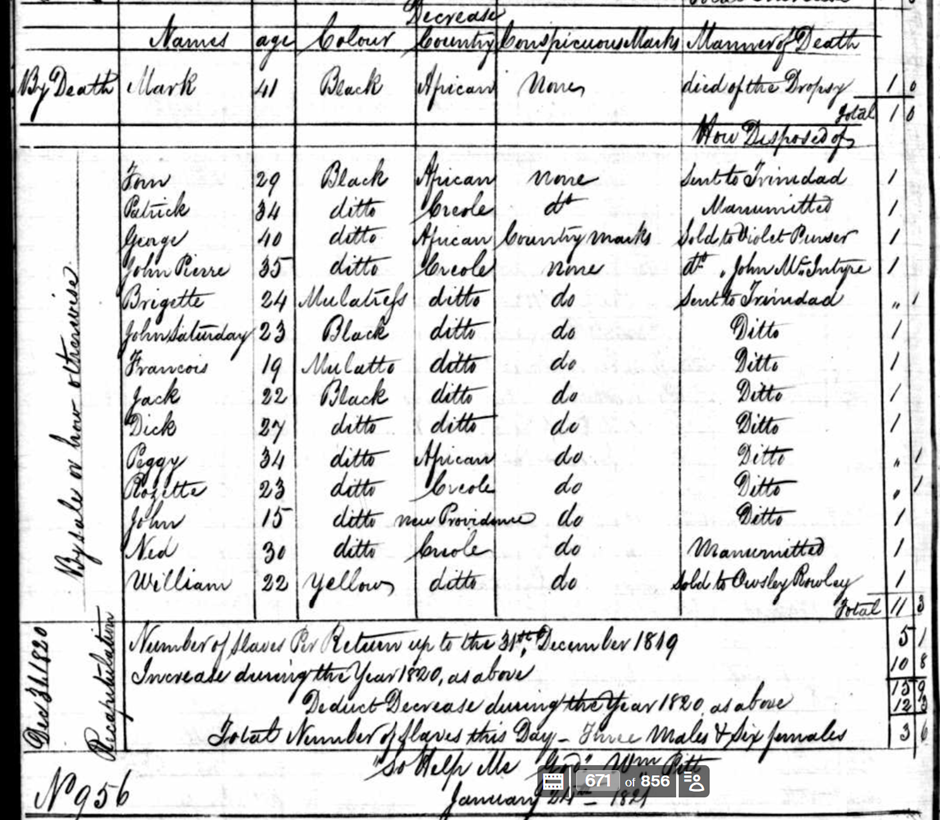 Decrease
Names age Colour Country Conspicuous Marks Manner of Death
By Death Mark 41 Black African none died of the Dropsy 1 0
Total 1 0
How Disposed of
By sale or how otherwise
Tom 29 Black African none Sent to Trinidad 1
Patrick 34 ditto Creole do Manumitted 1
George 40 ditto African Country marks Sold to Violet Purser 1
John Pierre 35 ditto Creole none do " John McIntyre 1
Brigette 24 Mulatress ditto do Sent to Trinidad " 1
John Saturday 23 Black ditto do Ditto 1
Francois 19 Mulatto ditto do Ditto 1
Jack 22 Black ditto do Ditto 1
Dick 27 ditto ditto do Ditto 1
Peggy 34 ditto African do Ditto " 1
Rozette 23 ditto Creole do Ditto " 1
John 15 ditto new Providence do Ditto 1
Ned 30 ditto Creole do Manumitted 1
William 22 Yellow ditto do Sold to Owsley Rowley 1
Total 11 3
Dec 31 1820
Recapitulation
Number of slaves Per Return up to the 31st December 1819 5 1
Increase during the Year 1820, as above 10 8
15 9
Deduct Decrease during the Year 1820, as above 12 3
Total Number of slaves this Day – Three Males & Six females 3 6
So Help Me God! Wm Pitt
671 of 856
No 956
January 24th – 1821